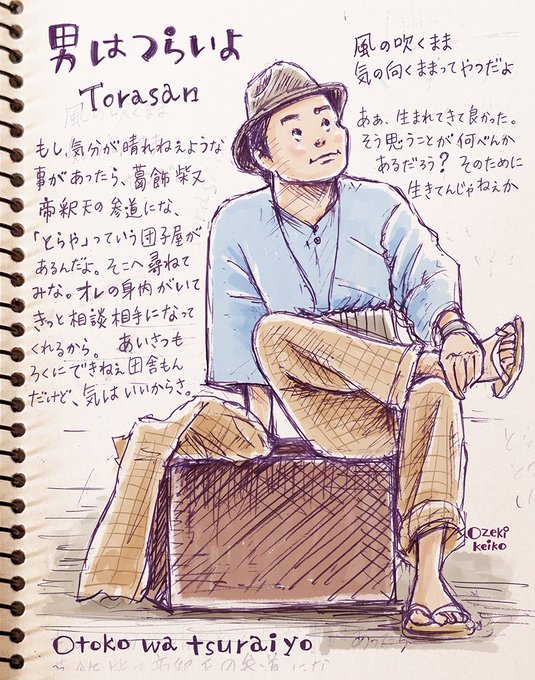 男はつらいよ
Torasan
もし、気分が晴れねえような
事があったら、葛飾柴又
帝釈天の参道にな、
「とらや」っていう団子屋が
あるんだよ。そこへ尋ねて
みな。オレの身内がいて
きっと相談相手になって
くれるから。 あいさつも
ろくにできねえ田舎もん
だけど、気はいいからさ。
風の吹くまま
気の向くままってやつだよ
ああ、生まれてきて良かった。
そう思うことが何べんか
あるだろう？そのために
生きてんじゃねえか
Ozeki
Keiko
Otoko wa tsuraiyo